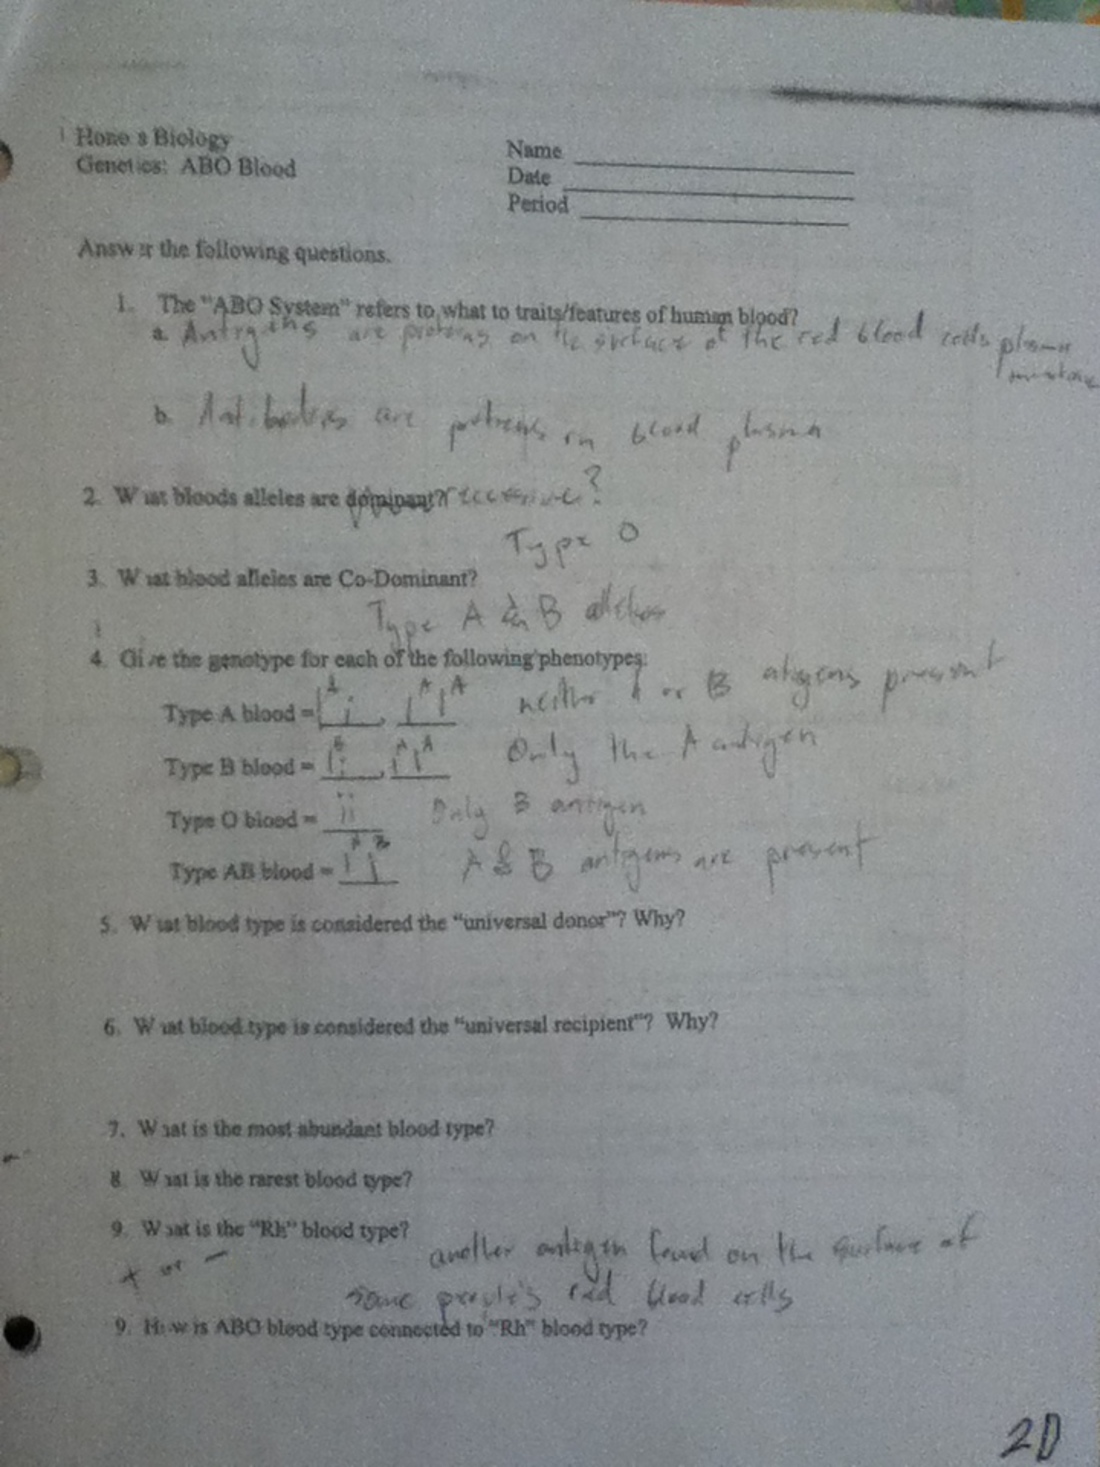 Hono s Biology
Genetics: ABO Blood
Name
Date
Period
Answer the following questions.
1. The "ABO System" refers to what to traits/features of human blood?
a. Antigens are proteins on the surface of the red blood cells plasma
b. Antibodies are proteins in blood plasma
2. What bloods alleles are dominant? recessive?
Type O
3. What blood alleles are Co-Dominant?
Type A & B alleles
4. Give the genotype for each of the following phenotypes:
Type A blood = I^A i, I^A I^A neither A or B atigens present
Type B blood = I^B i, I^A I^A Only the A antigen
Type O blood = ii Only B antigen
Type AB blood = I^A I^B A & B antigens are present
5. What blood type is considered the "universal donor"? Why?
6. What blood type is considered the "universal recipient"? Why?
7. What is the most abundant blood type?
8. What is the rarest blood type?
9. What is the "Rh" blood type?
+ or - another antigen found on the surface of
some people's red blood cells
9. How is ABO blood type connected to "Rh" blood type?
20